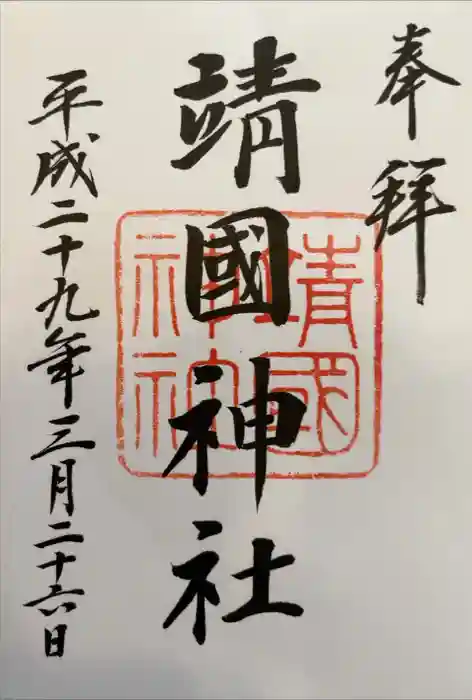 奉拜
靖國神社
靖國
神社
平成二十九年三月二十六日